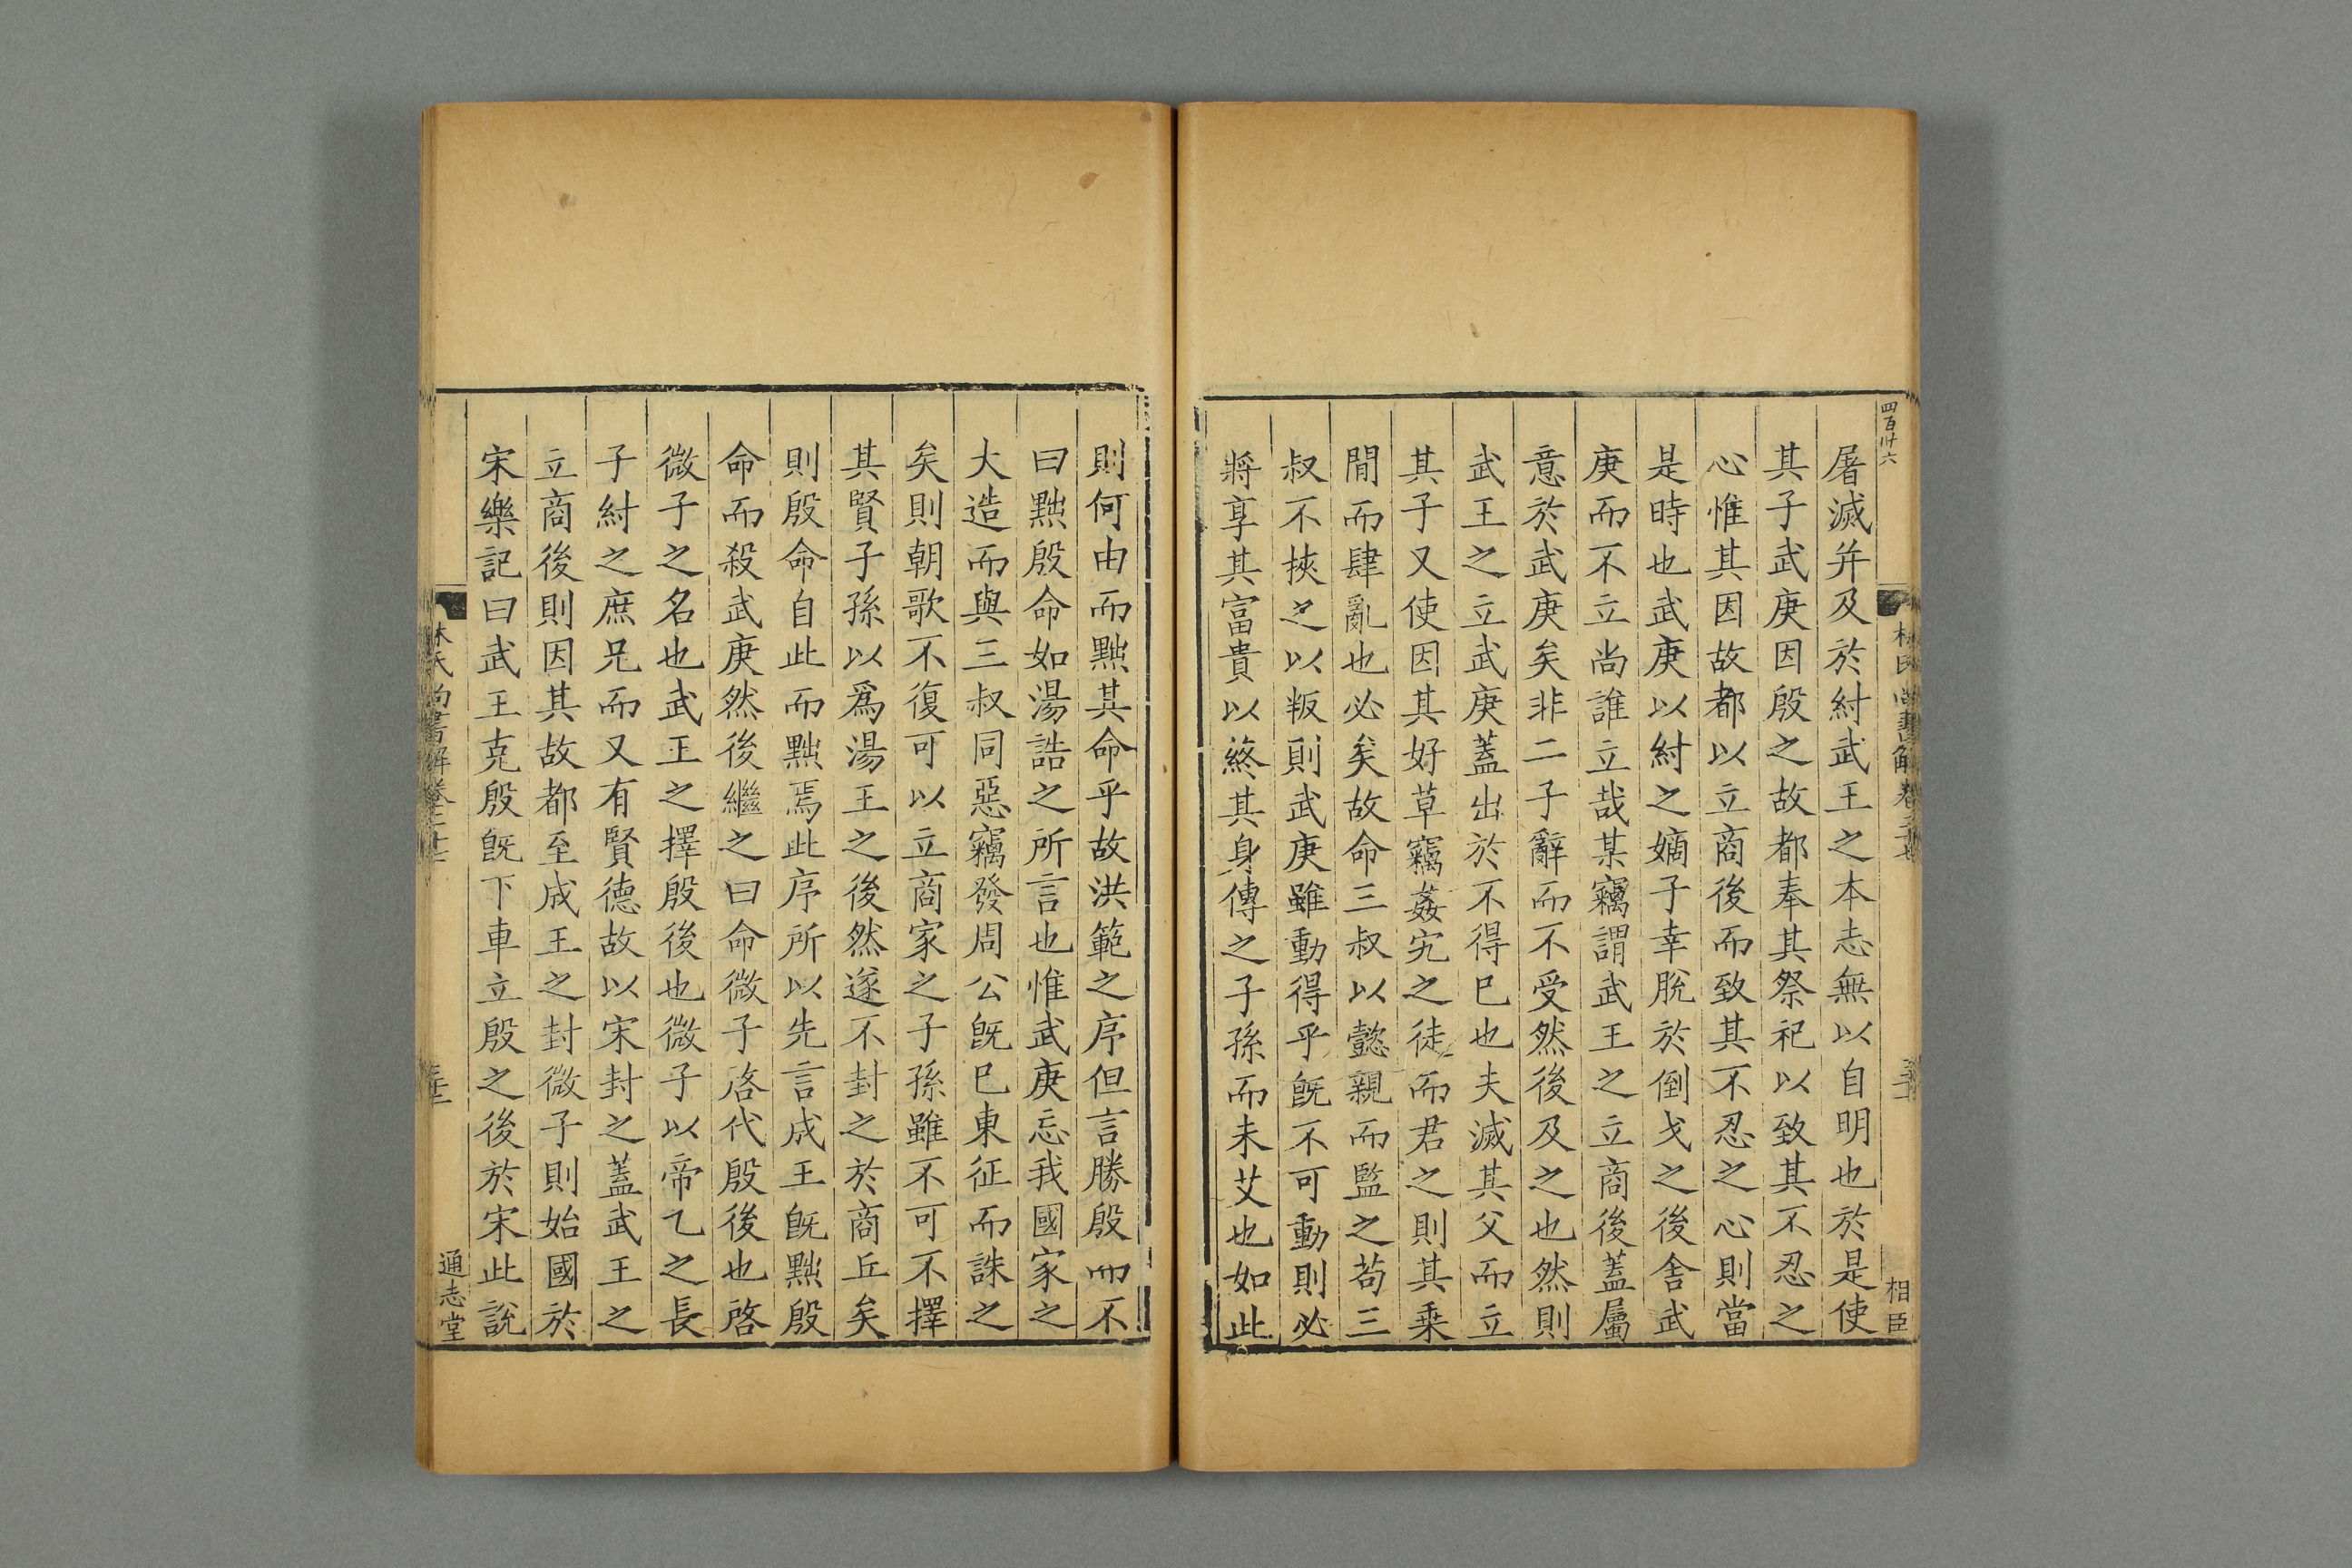 四百卅六
相臣
屠滅并及於紂武王之本志無以自明也於是使
其子武庚因殷之故都奉其祭祀以致其不忍之
心惟其因故都以立商後而致其不忍之心則當
是時也武庚以紂之嫡子幸脫於倒戈之後舍武
庚而不立尚誰立哉某竊謂武王之立商後蓋屬
意於武庚矣非二子辭而不受然後及之也然則
武王之立武庚蓋出於不得已也夫滅其父而立
其子又使因其好草竊姦宄之徒而君之則其乗
閒而肆亂也必矣故命三叔以懿親而監之苟三
叔不挾之以叛則武庚雖動得乎旣不可動則必
將享其富貴以終其身傳之子孫而未艾也如此
則何由而黜其命乎故洪範之序但言勝殷而不
曰黜殷命如湯誥之所言也惟武庚忘我國家之
大造而與三叔同惡竊發周公旣已東征而誅之
矣則朝歌不復可以立商家之子孫雖不可不擇
其賢子孫以爲湯王之後然遂不封之於商丘矣
則殷命自此而黜焉此序所以先言成王旣黜殷
命而殺武庚然後繼之曰命微子啓代殷後也啓
微子之名也武王之擇殷後也微子以帝乙之長
子紂之庶兄而又有賢德故以宋封之蓋武王之
立商後則因其故都至成王之封微子則始國於
宋樂記曰武王克殷旣下車立殷之後於宋此說
林氏尚書解卷二十七
通志堂